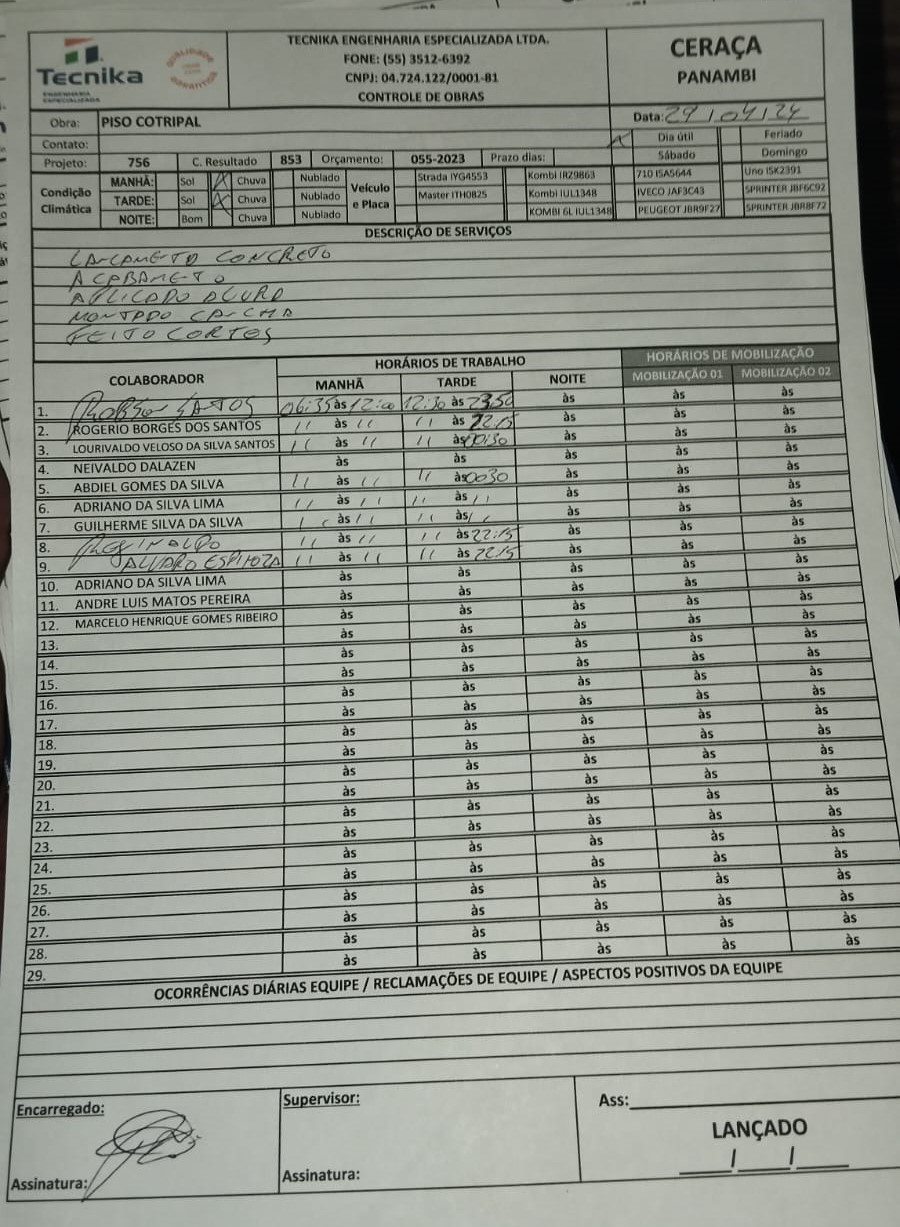 Tecnika
ENGENHARIA
ESPECIALIZADA
QUALIDADE
GARANTIDA
TECNIKA ENGENHARIA ESPECIALIZADA LTDA.
FONE: (55) 3512-6392
CNPJ: 04.724.122/0001-81
CONTROLE DE OBRAS
CERAÇA
PANAMBI
Obra: PISO COTRIPAL
Data: 29/04/24
Contato:
X Dia útil Feriado
Projeto: 756 C. Resultado 853 Orçamento: 055-2023 Prazo dias: Sábado Domingo
Condição Climática
MANHÃ: Sol X Chuva Nublado
TARDE: Sol X Chuva Nublado
NOITE: Bom Chuva Nublado
Veículo e Placa
Strada IYG4553 Kombi IRZ9863 710 ISA5644 Uno ISK2391
Master ITH0825 Kombi IUL1348 IVECO JAF3C43 SPRINTER JBF6C92
KOMBI 6L IUL1348 PEUGEOT JBR9F27 SPRINTER JBR8F72
DESCRIÇÃO DE SERVIÇOS
LANCAMETO CONCRETO
ACABAMETO
APLICADO ACURA
MONTADO CANCHA
FEITO CORTES
COLABORADOR HORÁRIOS DE TRABALHO HORÁRIOS DE MOBILIZAÇÃO
MANHÃ TARDE NOITE MOBILIZAÇÃO 01 MOBILIZAÇÃO 02
1. ROBSON SANTOS 06:35 às 12:00 12:30 às 23:50 às às às
2. ROGERIO BORGES DOS SANTOS 11 às 11 11 às 22:15 às às às
3. LOURIVALDO VELOSO DA SILVA SANTOS 11 11 11 às 00:30 às às às
4. NEIVALDO DALAZEN às às às às às
5. ABDIEL GOMES DA SILVA 11 às 11 11 às 0030 às às às
6. ADRIANO DA SILVA LIMA 11 às 11 11 às 11 às às às
7. GUILHERME SILVA DA SILVA 11 às 11 11 às 11 às às às
8. REGINALDO 11 às 11 11 às 22:15 às às às
9. ALVARO ESPINOZA 11 às 11 11 às 22:15 às às às
10. ADRIANO DA SILVA LIMA às às às às às
11. ANDRE LUIS MATOS PEREIRA às às às às às
12. MARCELO HENRIQUE GOMES RIBEIRO às às às às às
13. às às às às às
14. às às às às às
15. às às às às às
16. às às às às às
17. às às às às às
18. às às às às às
19. às às às às às
20. às às às às às
21. às às às às às
22. às às às às às
23. às às às às às
24. às às às às às
25. às às às às às
26. às às às às às
27. às às às às às
28. às às às às às
29. às às às às às
OCORRÊNCIAS DIÁRIAS EQUIPE / RECLAMAÇÕES DE EQUIPE / ASPECTOS POSITIVOS DA EQUIPE
Encarregado:
Assinatura:
Supervisor:
Assinatura:
Ass:
LANÇADO
/ /